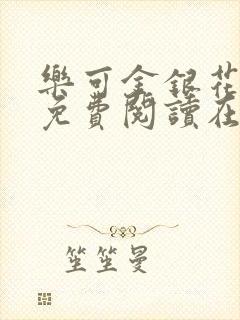 樂可金銀花
免費閱讀在
笙笙曼